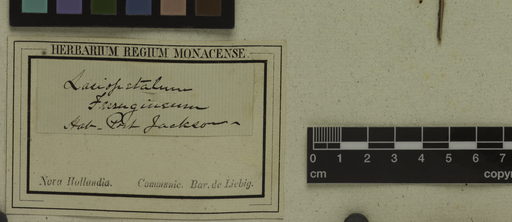 HERBARIUM REGIUM MONACENSE.
Lasiopetalum
Ferrugineum
Hab. Port Jackson
Nova Hollandia. Communic. Bar. de Liebig.
0 1 2 3 4 5 6 7
cm copy